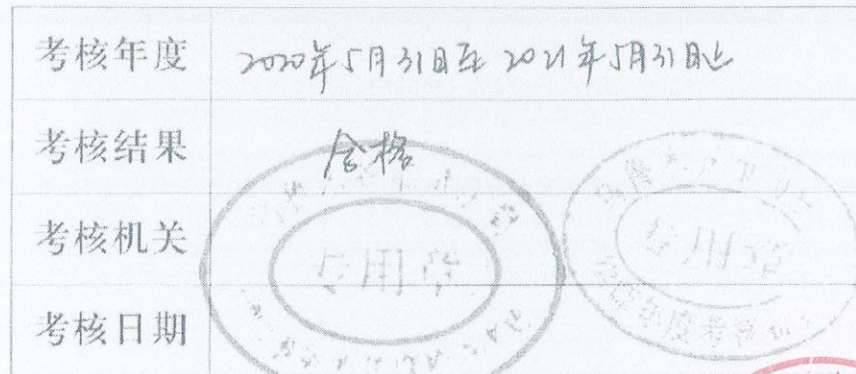 考核年度 2020年5月31日至2021年5月31日止
考核结果 合格
考核机关
专用章
专用章
年度考核
考核日期